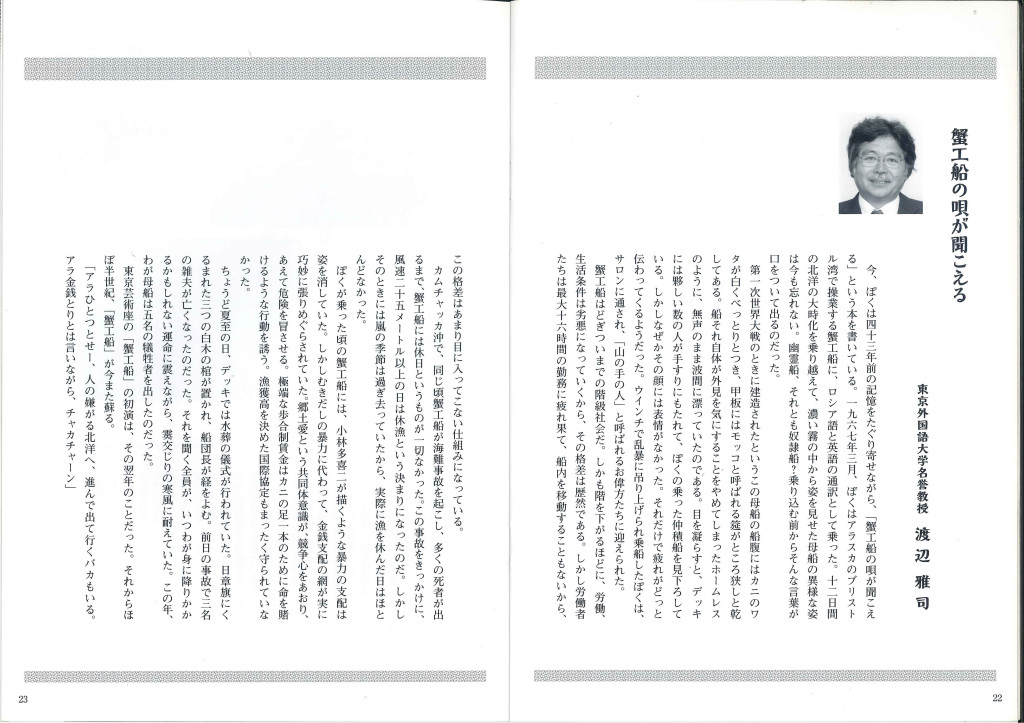 蟹工船の唄が聞こえる
東京外国語大学名誉教授 渡辺 雅司
今、ぼくは四十三年前の記憶をたぐり寄せながら、「蟹工船の唄が聞こえ
る」という本を書いている。一九六七年三月、ぼくはアラスカのブリスト
ル湾で操業する蟹工船に、ロシア語と英語の通訳として乗った。十二日間
の北洋の大時化を乗り越えて、濃い霧の中から姿を見せた母船の異様な姿
は今も忘れない。幽霊船、それとも奴隷船?乗り込む前からそんな言葉が
口をついて出るのだった。
第一次世界大戦のときに建造されたというこの母船の船腹にはカニのワ
タが白くべっとりとつき、甲板にはモッコと呼ばれる筵がところ狭しと乾
してある。船それ自体が外見を気にすることをやめてしまったホームレス
のように、無声のまま波間に漂っていたのである。目を凝らすと、デッキ
には夥しい数の人が手すりにもたれて、ぼくの乗った仲積船を見下ろして
いる。しかしなぜかその顔には表情がなかった。それだけで疲れがどっと
伝わってくるようだった。ウインチで乱暴に吊り上げられ乗船したぼくは、
サロンに通され、「山の手の人」と呼ばれるお偉方たちに迎えられた。
蟹工船はどぎついまでの階級社会だ。しかも階を下がるほどに、労働、
生活条件は劣悪になっていくから、その格差は歴然である。しかし労働者
たちは最大十六時間の勤務に疲れ果て、船内を移動することもないから、
22
この格差はあまり目に入ってこない仕組みになっている。
カムチャッカ沖で、同じ頃蟹工船が海難事故を起こし、多くの死者が出
るまで、蟹工船には休日というものが一切なかった。この事故をきっかけに、
風速二十五メートル以上の日は休漁という決まりになったのだ。しかし
そのときには嵐の季節は過ぎ去っていたから、実際に漁を休んだ日はほと
んどなかった。
ぼくが乗った頃の蟹工船には、小林多喜二が描くような暴力の支配は
姿を消していた。しかしむきだしの暴力に代わって、金銭支配の網が実に
巧妙に張りめぐらされていた。郷土愛という共同体意識が、競争心をあおり、
あえて危険を冒させる。極端な歩合制賃金はカニの足一本のために命を賭
けるような行動を誘う。漁獲高を決めた国際協定もまったく守られていな
かった。
ちょうど夏至の日、デッキでは水葬の儀式が行われていた。日章旗にく
るまれた三つの白木の棺が置かれ、船団長が経をよむ。前日の事故で三名
の雑夫が亡くなったのだった。それを聞く全員が、いつわが身に降りかか
るかもしれない運命に震えながら、霙交じりの寒風に耐えていた。この年、
わが母船は五名の犠牲者を出したのだった。
東京芸術座の「蟹工船」の初演は、その翌年のことだった。それからほ
ぼ半世紀、「蟹工船」が今また蘇る。
「アラひとつとせー、人の嫌がる北洋へ、進んで出て行くバカもいる。
アラ金銭とりとは言いながら、チャカチャーン」
23